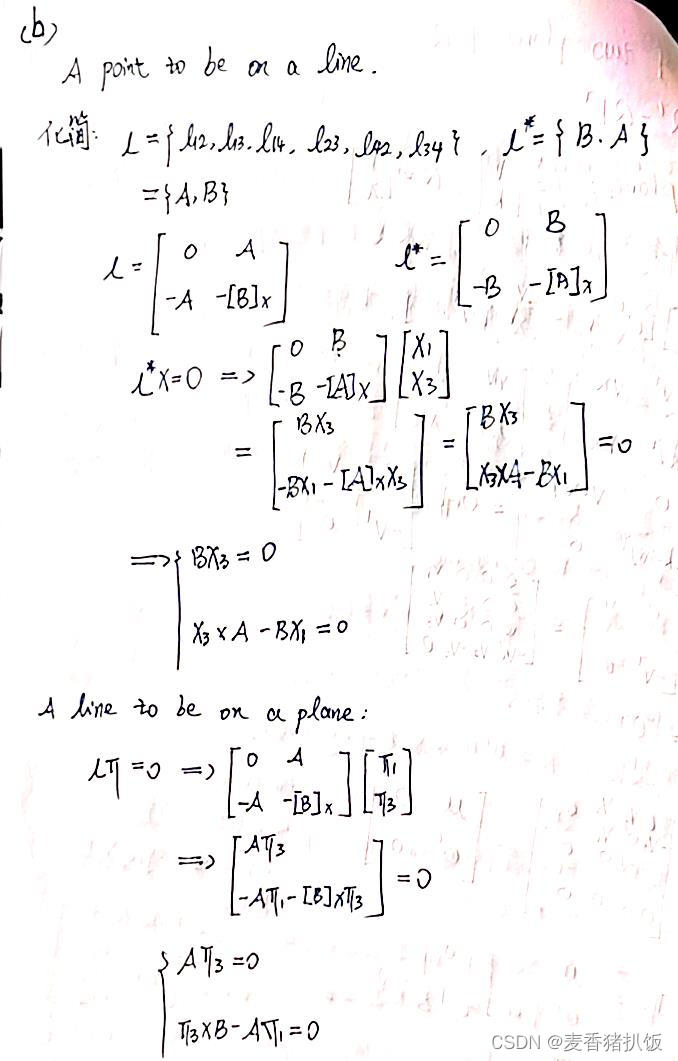 (b)
A point to be on a line.
化简: L = { l12, l13. l14, l23, l42, l34 } , L* = { B. A }
= { A, B }
L = [ 0 A ; -A -[B]x ] L* = [ 0 B ; -B -[A]x ]
L*X=0 => [ 0 B ; -B -[A]x ] [ X1 ; X3 ]
= [ BX3 ; -BX1 - [A]xX3 ] = [ BX3 ; X3×A - BX1 ] = 0
=> { BX3 = 0
X3 × A - BX1 = 0
A line to be on a plane:
Lπ = 0 => [ 0 A ; -A -[B]x ] [ π1 ; π3 ]
=> [ Aπ3 ; -Aπ1 - [B]xπ3 ] = 0
{ Aπ3 = 0
π3×B - Aπ1 = 0
CSDN @麦香猪扒饭